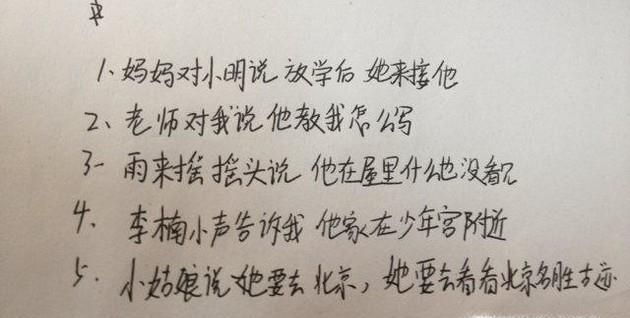 1、妈妈对小明说 放学后 她来接他
2、老师对我说 他教我怎么写
3- 雨来摇摇头说 他在屋里什么也没看见
4、李楠小声告诉我 他家在少年宫附近
5. 小姑娘说她要去北京，她要去看看北京名胜古迹